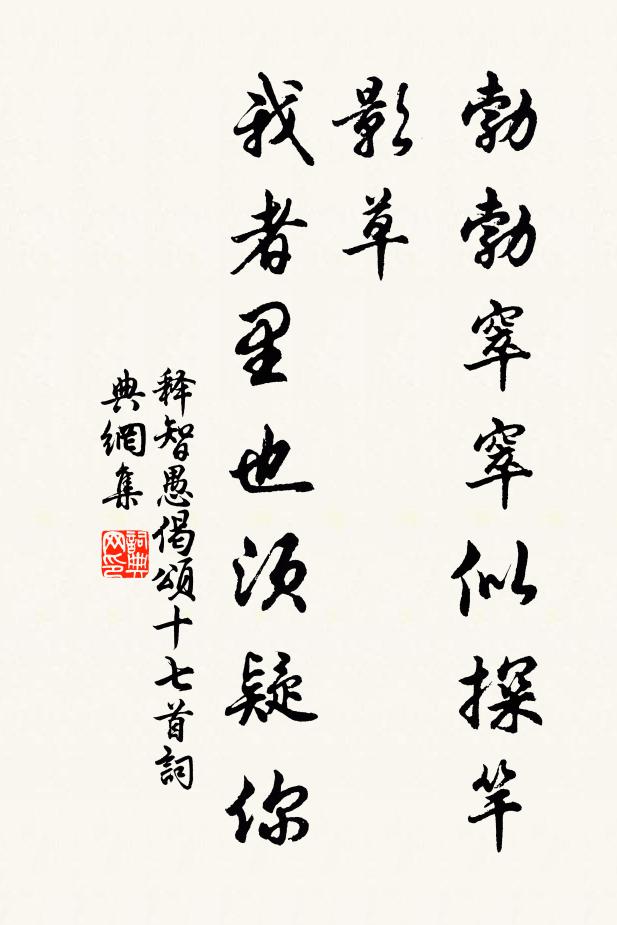 勃勃窣窣似探竿
影草
我者里也须疑你
释智愚偈頌十七首詞
典網集
詞典
网印